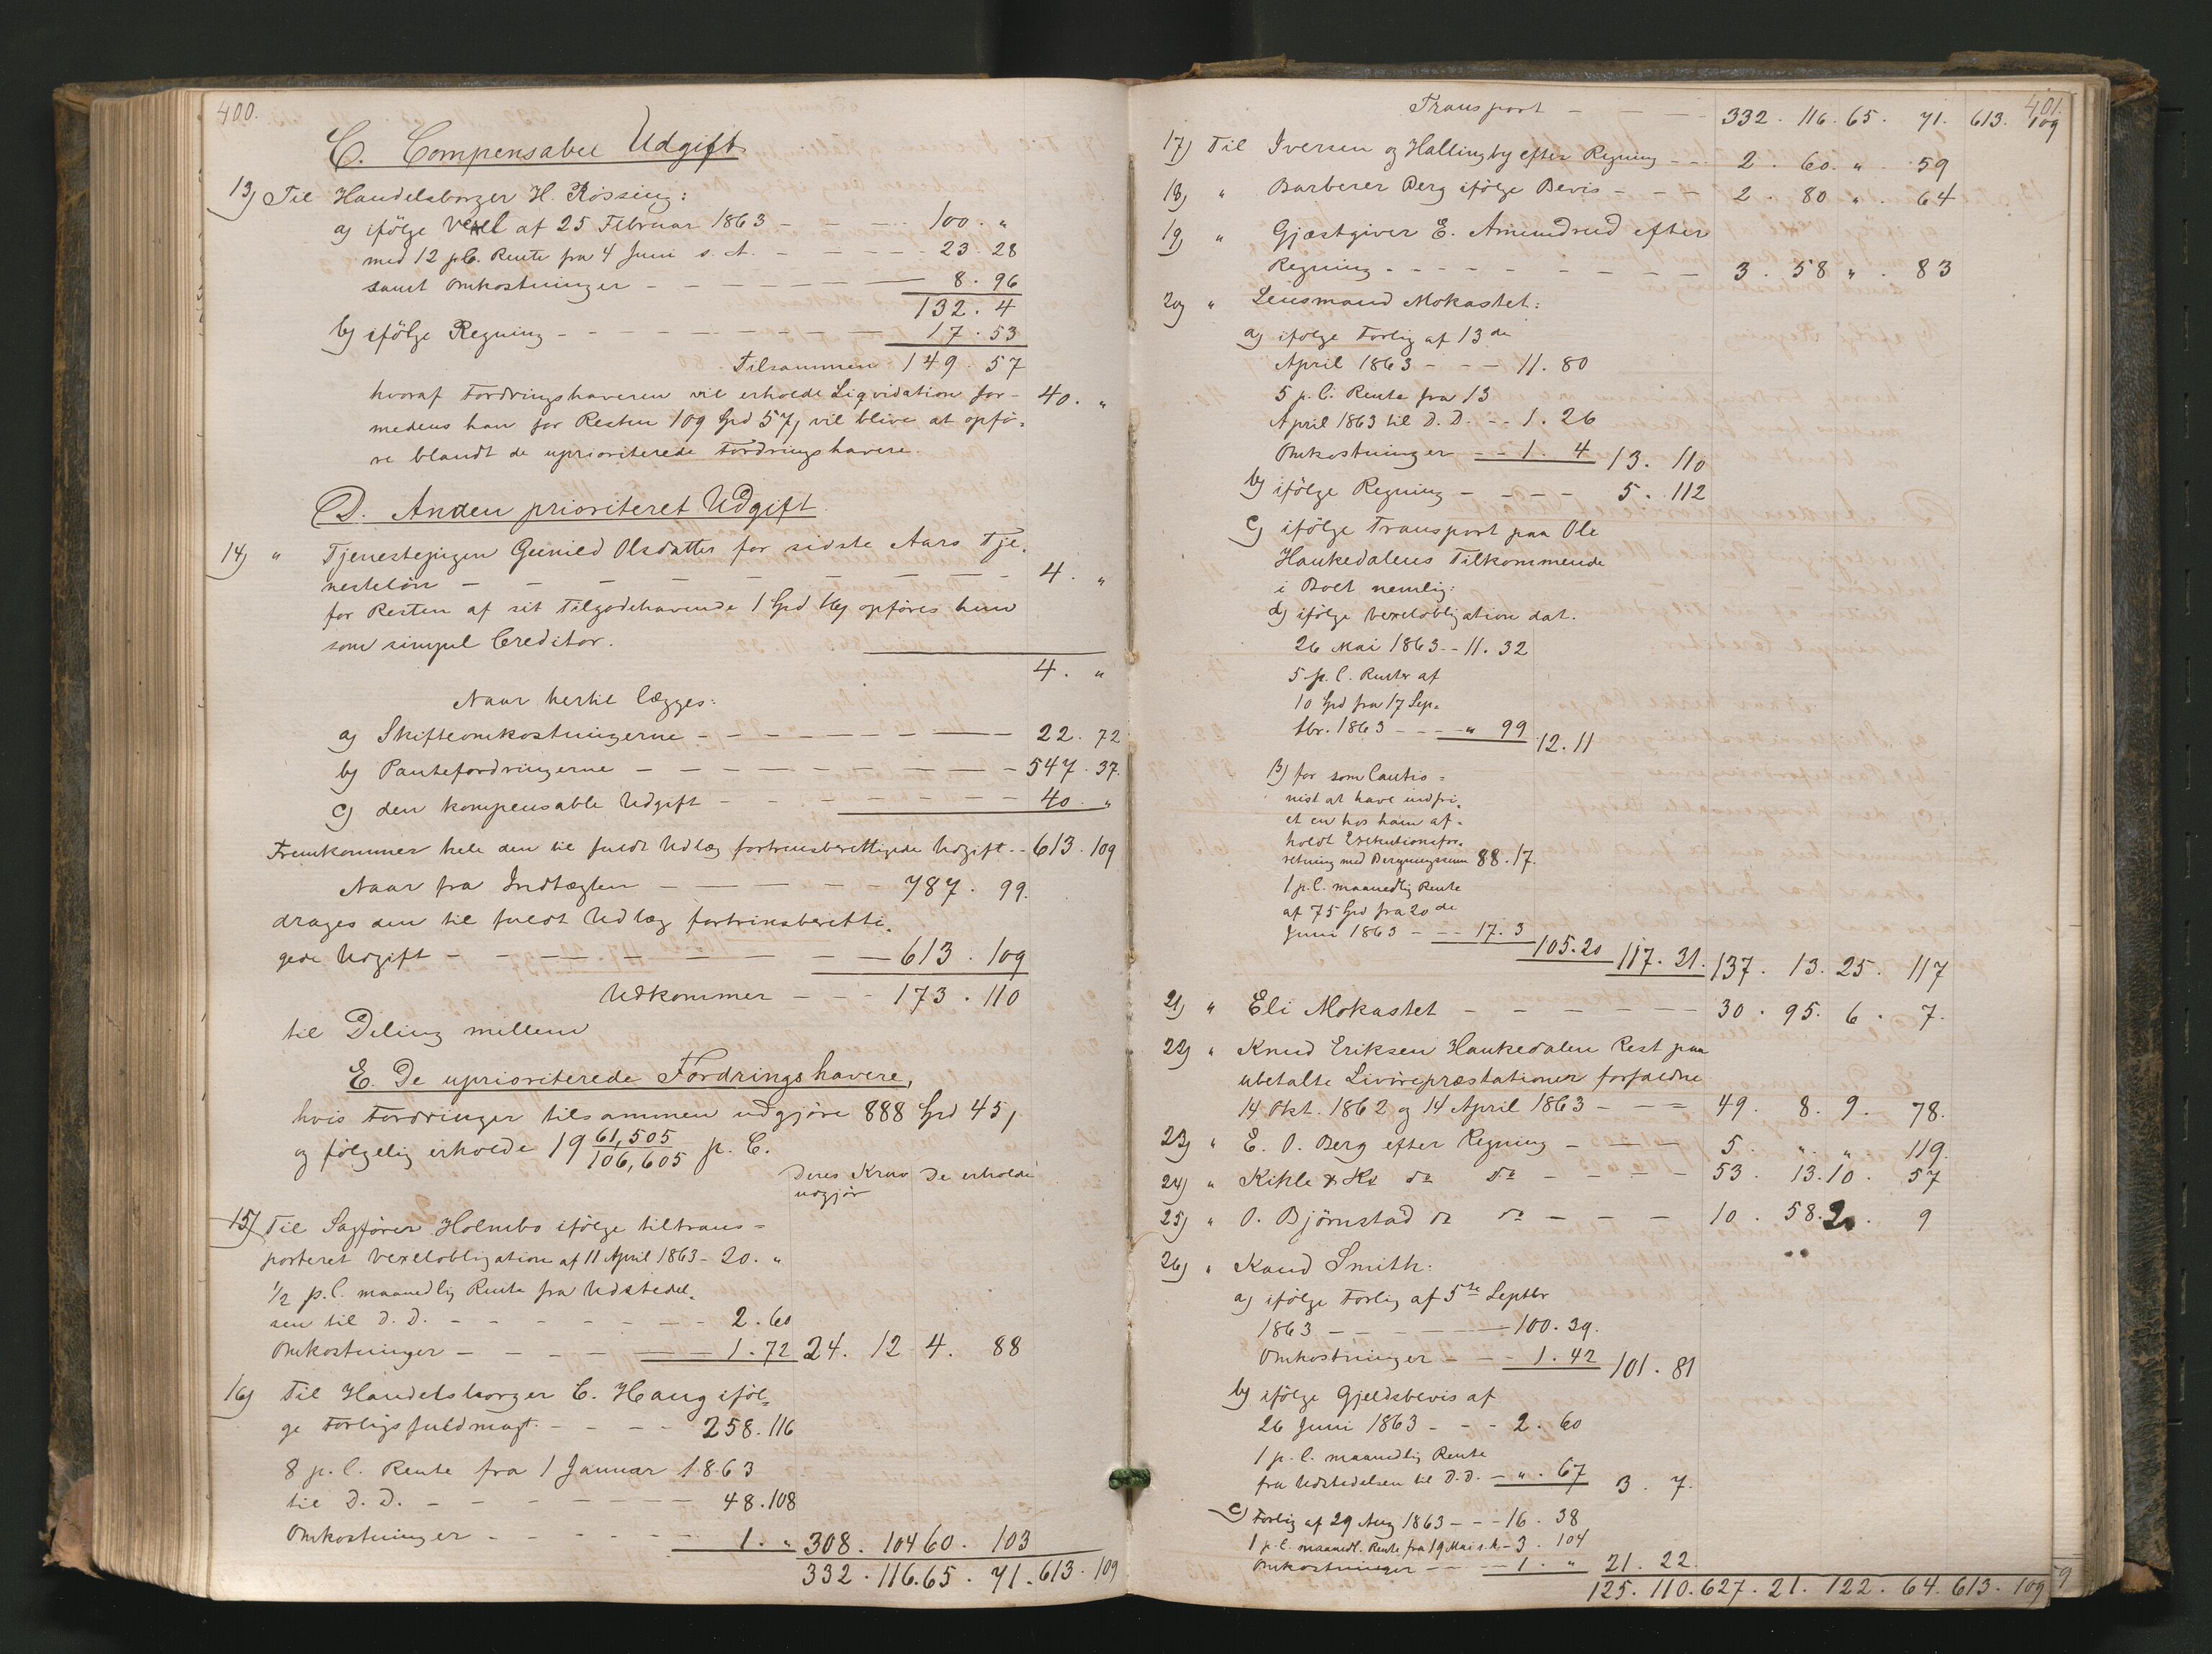 400.
C. Compensabel Udgift
13) Til Handelsborger H. Rossing:
a) ifölge Vexel af 25 Februar 1863 - - - 100. "
med 12 p.C. Rente fra 4 Juni s. A. - - - - 23. 28
samt Omkostninger - - - - - - 8. 96
132. 4
b) ifölge Regning - - - - - - - - 17. 53
Tilsammen 149. 57
hvoraf Fordringshaveren vil erholde Liqvidation for - 40. "
medens han for Resten 109 Spd 57, vil blive at opfö-
re blandt de uprioriterede Fordringshavere.
D. Anden prioriteret Udgift.
14) " Tjenestepigen Gunild Olsdatter for sidste Aars Tje-
nestelön - - - - - - - - - 4. "
for Resten af sit Tilgodehavende 1 Spd opföres hun
som simpel Creditor.
4. "
Naar hertil lægges:
a) Skifteomkostningerne - - - - - - - - 22. 72
b) Pantefordringerne - - - - - - - - - 547. 37.
c) den kompensable Udgift - - - - - - - 40. "
Fremkommer hele den til fuldt Udlæg fortrinsberettigede Udgift - - 613. 109
Naar fra Indtægten - - - - - - 787. 99.
drages den til fuldt Udlæg fortrinsberetti-
gede Udgift - - - - - - - - 613. 109
Udkommer - - - 173. 110
til Deling mellem
E. De uprioriterede Fordringshavere,
hvis Fordringer tilsammen udgjöre 888 Spd 45,
og fölgelig erholde 19 61,505/106,605 p. C.
Deres Krav De erholde
udgjör
15) Til Sagförer Holmbo ifölge tiltrans-
porteret Vexelobligation af 11 April 1863 - 20. "
1/2 p.C. maanedlig Rente fra Udstedel-
sen til D. D. - - - - - - - 2. 60
Omkostninger - - - - - - 1. 72 24. 12 4. 88
16) Til Handelsborger C. Haug iföl-
ge Forligsfuldmagt. - - - - 258. 116
8 p.C. Rente fra 1 Januar 1863
til D. D. - - - - - - - 48. 108
Omkostninger - - - - - - 1. " 308. 104 60. 103
332. 116. 65. 71. 613. 109
401.
Transport - - - 332. 116. 65. 71. 613. 109
17) Til Iversen og Hallingby efter Regning - - 2. 60. ". 59
18) " Barberer Berg ifölge Bevis - - - 2. 80 ". 64
19) " Gjæstgiver E. Amundrud efter
Regning - - - - - - - - - 3. 58 ". 83
20) " Lensmand Mokastet:
a) ifölge Forlig af 13de
April 1863 - - - 11. 80
5 p.C. Rente fra 13
April 1863 til D. D. - - 1. 26
Omkostninger - - 1. 4 13. 110
b) ifölge Regning - - - - 5. 112
c) ifölge Transport paa Ole
Haukedalens Tilkommende
i Boet nemlig:
α) ifölge Vexelobligation dat.
26 Mai 1863 - - 11. 32
5 p.C. Renter af
10 Spd fra 17 Sep-
tbr. 1863 - - - " 99 12. 11
β) for som Cautio-
nist at have indfri-
et en hos ham af-
holdt Exekutionsfor-
retning med Bergningssum 88. 17.
1 p.C. maanedlig Rente
af 75 Spd fra 20de
Juni 1863 - - - 17. 3 105. 20 117. 31. 137. 13. 25. 117
21) " Eli Mokastet - - - - - - 30. 95. 6. 7.
22) " Knud Eriksen Haukedalen Rest paa
ubetalte Livörepræstationer forfaldne
14 Okt. 1862 og 14 April 1863 - - - 49. 8. 9. 78.
23) " E. O. Berg efter Regning - - - 5. ". ". 119.
24) " Kihle & Ko do do - - - - 53. 13. 10. 57
25) " O. Björnstad do do - - - 10. 58. 2. 9
26) " Kand Smith:
a) ifölge Forlig af 5te Septbr
1863 - - - - - 100. 39.
Omkostninger - - - 1. 42 101. 81
b) ifölge Gjeldsbevis af
26 Juni 1863 - - - 2. 60
1 p.C. maanedlig Rente
fra Udstedelsen til D. D. - ". 67 3. 7.
c) Forlig af 29 Aug 1863 - - - 16. 38
1 p.C. maanedl. Rente fra 19 Mai s. A. - 3. 104
Omkostninger - - - 1. " 21. 22
125. 110. 627. 21. 122. 64. 613. 109